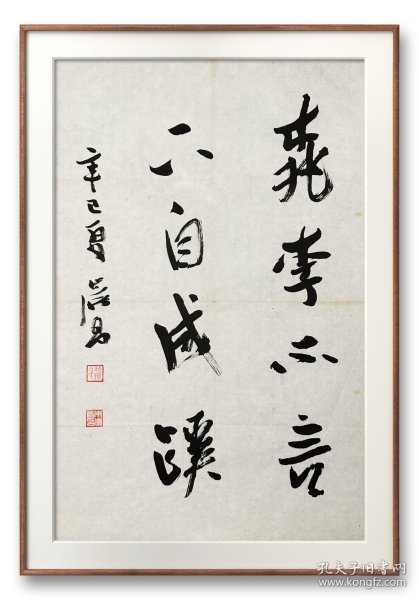 桃李不言
下自成蹊
辛巳夏
孔夫子旧书网
www.kongfz.com